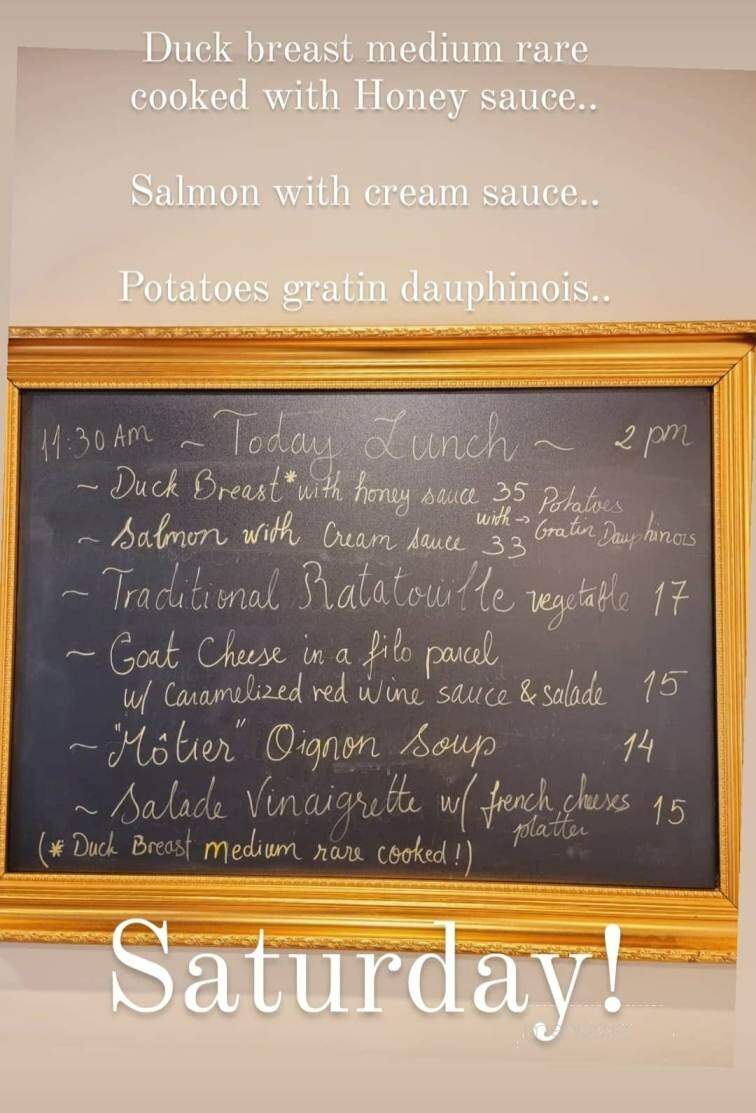 Duck breast medium rare
cooked with Honey sauce..
Salmon with cream sauce..
Potatoes gratin dauphinois..
11:30 AM ~ Today Lunch ~ 2 pm
~ Duck Breast* with honey sauce 35 Potatoes
~ Salmon with Cream sauce 33 with → Gratin Dauphinois
~ Traditional Ratatouille vegetable 17
~ Goat Cheese in a filo parcel
w/ Caramelized red wine sauce & salade 15
~ "Môtier" Oignon Soup 14
~ Salade Vinaigrette w/ french cheeses 15
platter
(* Duck Breast medium rare cooked!)
Saturday!